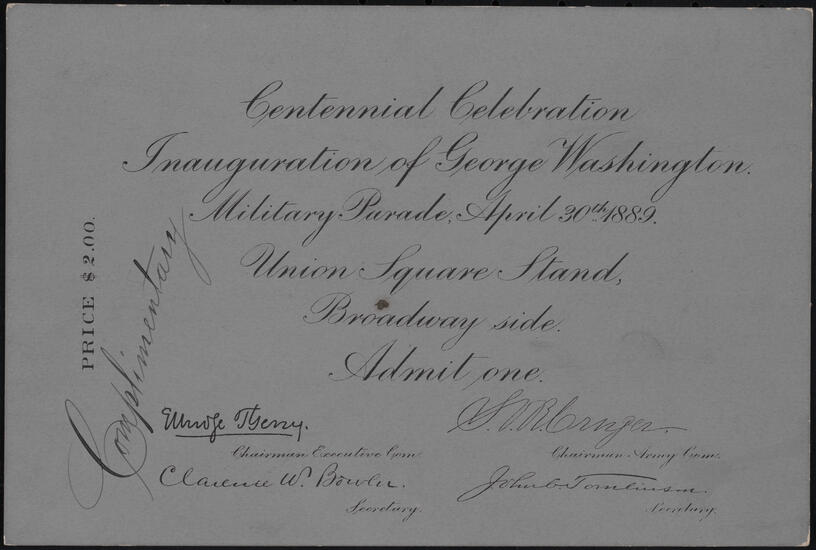 Centennial Celebration
Inauguration of George Washington.
Military Parade, April 30th 1889.
Union Square Stand,
Broadway side.
Admit one.
PRICE $2.00.
Complimentary
Elbridge T. Gerry.
Chairman Executive Com.
Clarence W. Bowen.
Secretary.
S. V. R. Cruger.
Chairman Army Com.
John C. Tomlinson.
Secretary.